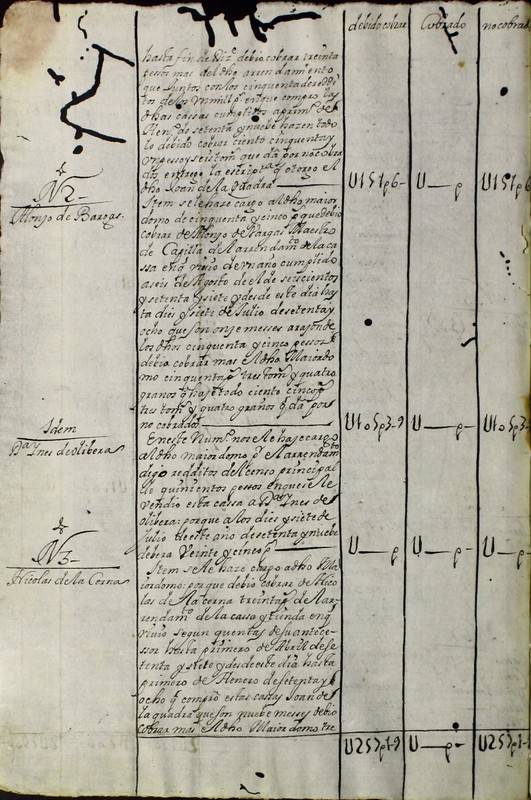 debido cobrar Cobrado no cobrad
hasta fin de Diz.e debio cobrar treinta
pessos mas del dho arrendamiento
que juntos con los cinquenta de reddi
tos de los un mill p.s en que compro las
dhas cassas cumplidos a prim.o de
Hen.o de setenta y nuebe hazen todo
lo debido cobrar ciento cinquenta y
un pessos y seis tom.s que da por no cobra
do, entrego la escrip.ra q otorgo el
dho Joan de la quadra
U151p6- U__p U151p6
N2-
Alonso de Bargas.
Item se le haze cargo al dho maior
domo de cinquenta y cinco p que debio
cobrar de Alonso de Vargas Maestro
de Capilla del arrendam.to de la ca
ssa en q vivio de un año cumplido
a seis de Agosto de el de seiscientos
y setenta y siete y desde este dia has
ta dies y siete de Julio de setenta y
ocho que son onze messes a razon de
los dhos cinquenta y cinco pessos
debio cobrar mas el dho Maiordo
mo cinquenta p tres tom.s y quatro
granos q haze todo ciento cinco p
tres tom.s y quatro granos q da por
no cobrados
U105p3-9 U__p- U105p3-9
Idem
D.a Ynes de Ribera
En este Num.o no se le haze cargo
al dho maiordomo p.r el arrendam.to
digo redditos del censo principal
de quinientos pessos en que se le
vendio esta cassa a D.a Ynes de
Ribera: porque a los dies y siete de
Julio de este año de setenta y nuebe
debera veinte y cinco p
U__p U__p- U__p-
N3-
Nicolas de la Cerna
Item se le haze cargo al dho Ma
iordomo: porque debio cobrar de Nico
las de la Cerna treinta p de el ar
rendam.to de la cassa y tienda en q
vivio segun quentas de su antece-
sor hasta primero de Abril de se
tenta y siete y desde este dia hasta
primero de Henero de setenta y
ocho q compro estas cassas Joan de
la quadra que son nuebe messes debio
cobrar mas el dho Maiordomo tre
U257p1-9 U__p- U257p1-